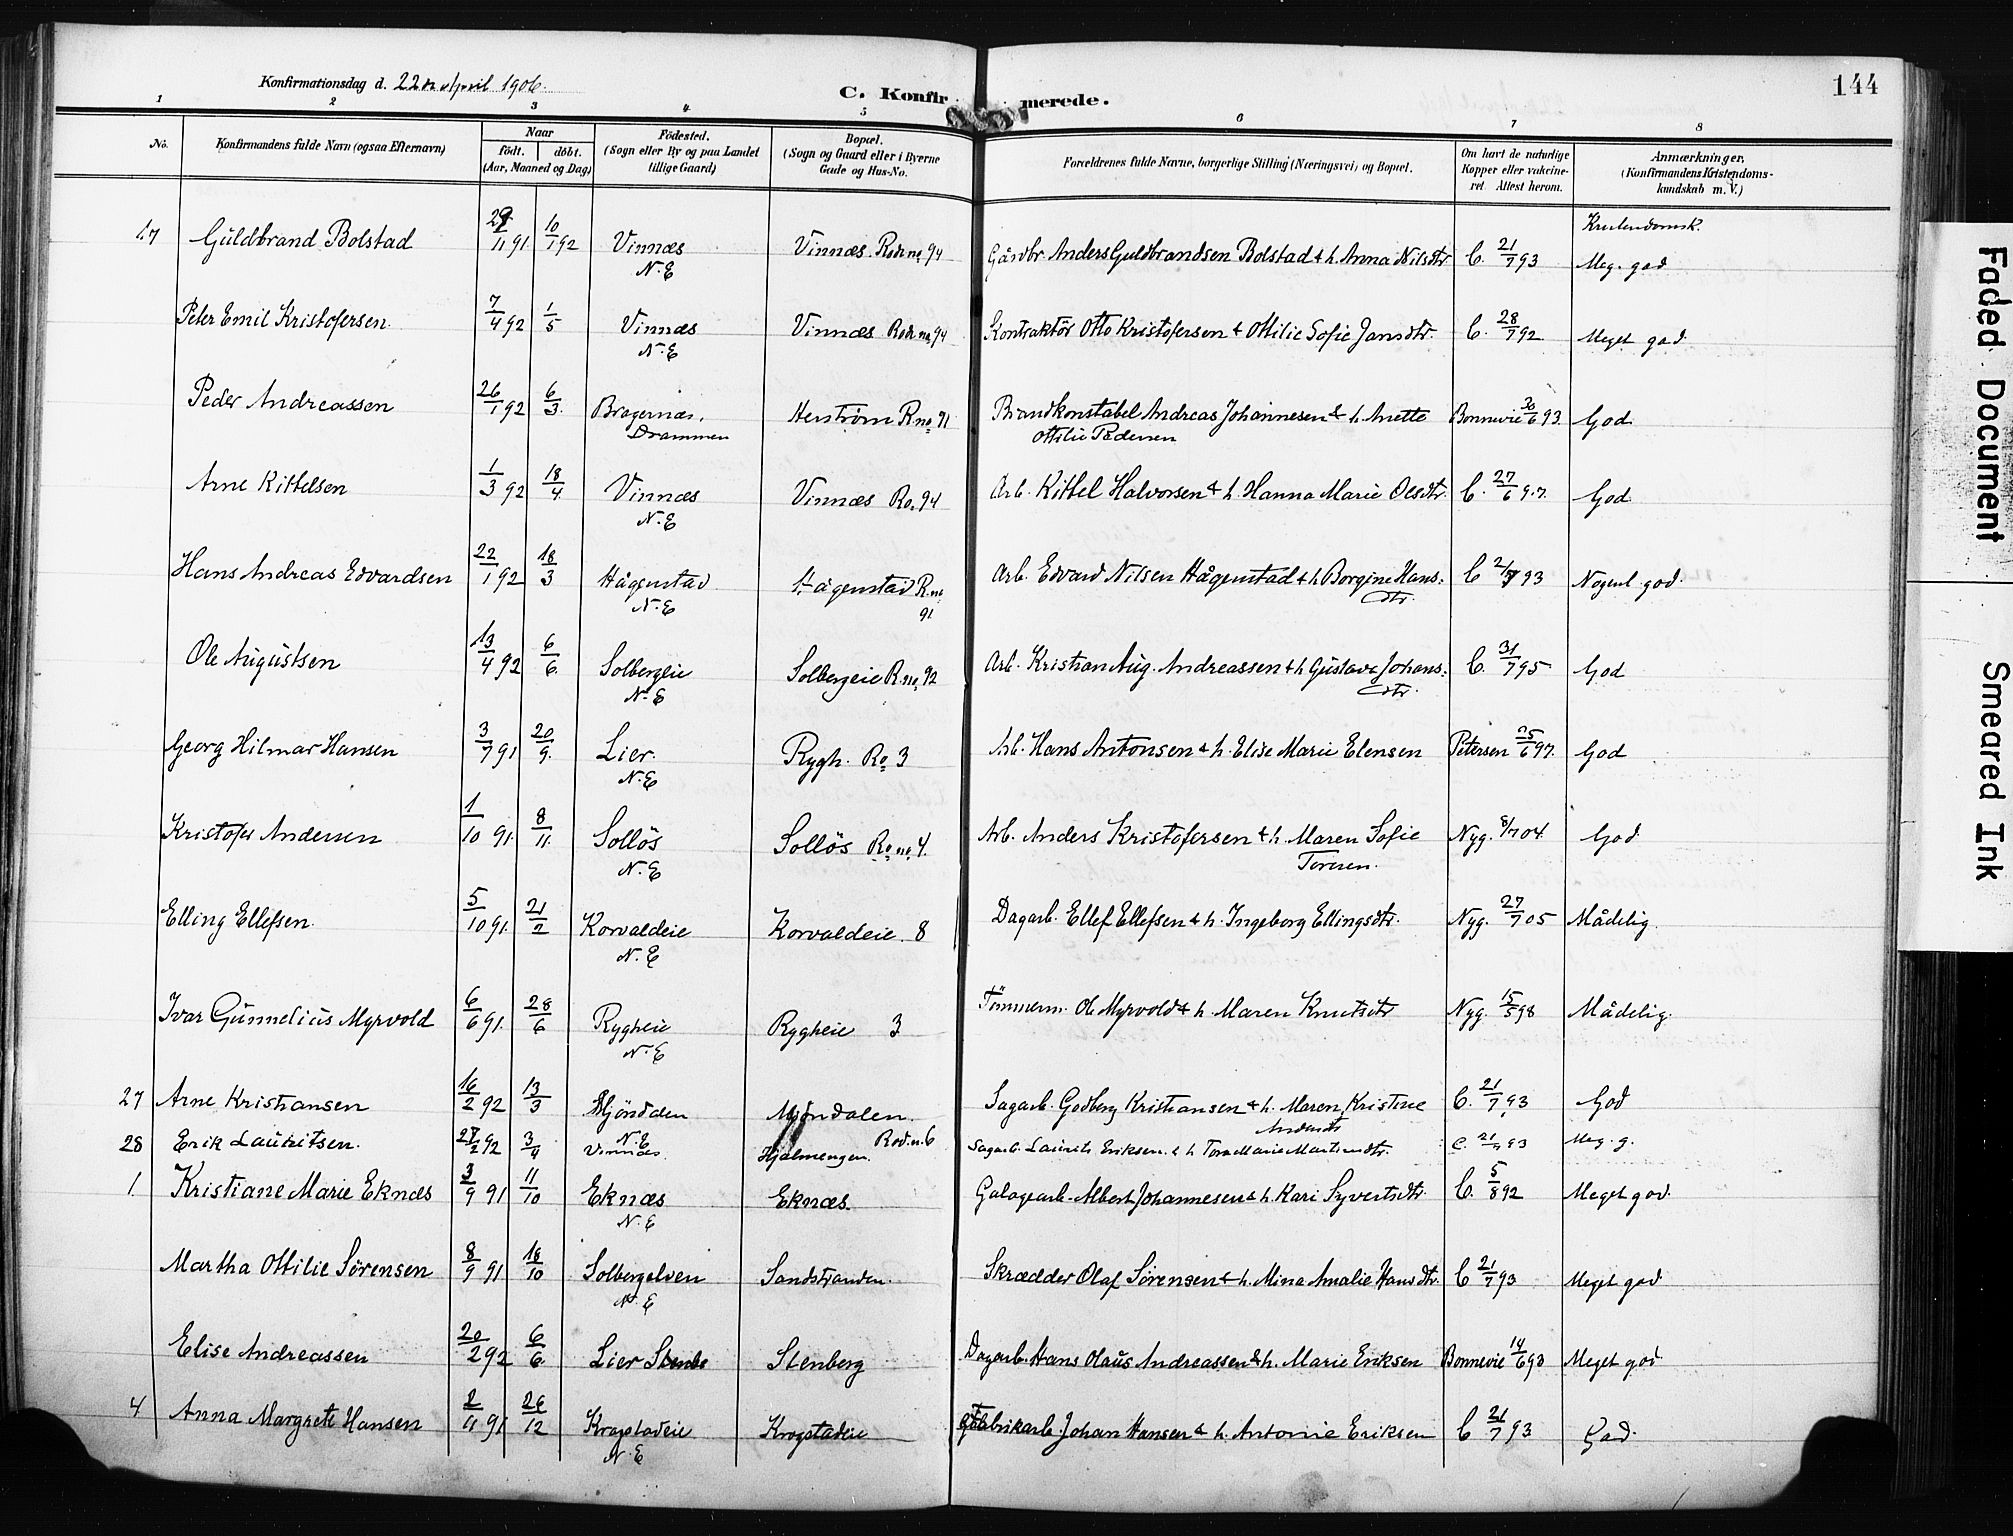 144
Konfirmationsdag d. 22n April 1906.
C. Konfirmerede.
1 2 3 4 5 6 7 8
No.
Konfirmandens fulde Navn (ogsaa Efternavn)
Naar
født. døbt.
(Aar, Maaned og Dag)
Fødested.
(Sogn eller By og paa Landet
tillige Gaard)
Bopæl.
(Sogn og Gaard eller i Byerne
Gade og Hus-No.
Forældrenes fulde Navne, borgerlige Stilling (Næringsvei) og Bopæl.
Om havt de naturlige
Kopper eller vakcine-
ret. Attest herom.
Anmærkninger.
(Konfirmandens Kristendoms-
kundskab m. V.)
17 Guldbrand Bolstad 11 91 10/1 92 Vinnæs N.E Vinnæs Rodno. 94 Gårdbr. Anders Guldbrandsen Bolstad & h. Anna Nilsdtr C. 21/7 93 Meg. god
Peter Emil Kristofersen 7/4 92 1/5 Vinnæs N.E Vinnæs Rodno. 94 Kontraktör Otto Kristofersen & Ottilie Sofie Jansdtr. C. 28/7 92 Meget god.
Peder Andreassen 26/1 92 6/3. Bragernæs, Drammen Herstrøm R.no. 91 Brandkonstabel Andreas Johannesen & h. Anette Ottilie Pedersen Bonnevie 30/6 93. God
Arne Kittelsen 1/3 92 18/4. Vinnæs N.E Vinnæs Ro. 94 Arb. Kittel Halvorsen & h. Hanna Marie Olsdtr. C. 27/6 97. God
Hans Andreas Edvardsen 22/1 92 18/3 Hågenstad N.E Hågenstad R.no 91 Arb. Edvard Nilsen Hågenstad & h Borgine Hans=dtr. C 2/7 93 Noget god.
Ole Augustsen 13/4 92 6/6. Solbergeie N.E Solbergeie R.no. 92 Arb. Kristian Aug. Andreassen & h Gustava Johans=dtr. C. 31/7 95 God
Georg Hilmar Hansen 3/7 91 20/9. Lier. N.E Rygh. Ro 3 Arb. Hans Antonsen & h. Elise Marie Elensen Petersen 25/6 97. God
Kristofer Andersen 1/10 91. 8/11. Solløs N.E Solløs Ro no. 4. Arb. Anders Kristofersen & h. Maren Sofie Torsen. Nyg. 8/7 04. God
Elling Ellefsen. 5/10 91. 21/2 Korvaldeie N.E Korvaldeie. 8 Dagarb. Ellef Ellefsen & h. Ingeborg Ellingsdtr. Nyg. 27/7 05 Mådelig.
Ivar Gunnelius Myrvold 6/6 91. 28/6 Rygheie N.E Rygheie 3 Tømmerm. Ole Myrvold & h. Maren Knutsdtr Nyg. 15/5 98 Mådelig.
27 Arne Kristiansen 16/2 92 13/3 Mjöndalen N.E Mjöndalen. Sagarb. Godberg Kristiansen & h. Maren Kristine Andersdtr C. 21/7 93 God
28 Erik Lauritsen. 27/2 92 3/4 Vinnæs. Hjelmengen. Rodn. 6 Sagarb. Laurits Eriksen. & h Tora Marie Martinsdtr. C. 21/7 93 Meg. g.
1. Kristiane Marie Eknæs 3/9 91 11/10 Eknæs N.E Eknæs. Albert Johannesen & h Kari Syvertsdtr. C. 5/8 92 Meget god.
Martha Ottilie Sørensen 8/9 91 18/10 Solbergelven N.E Sandstranden. Skrædder Olaf Sørensen & h. Mina Amalie Hansdtr. C 21/7 93 Meget god
Elise Andreassen 20/2 92 6/6 Lier Stenberg Dagarb. Hans Olaus Andreassen & h. Marie Eriksen Bonnevie 14/6 93 Meget god
4 Anna Margrete Hansen 2/11 91 26/12 Krogstadeie N.E Krogstadeie Fabrikarb. Johan Hansen & h. Antonie Eriksen C 21/7 93 God.
Faded Document
Smeared Ink